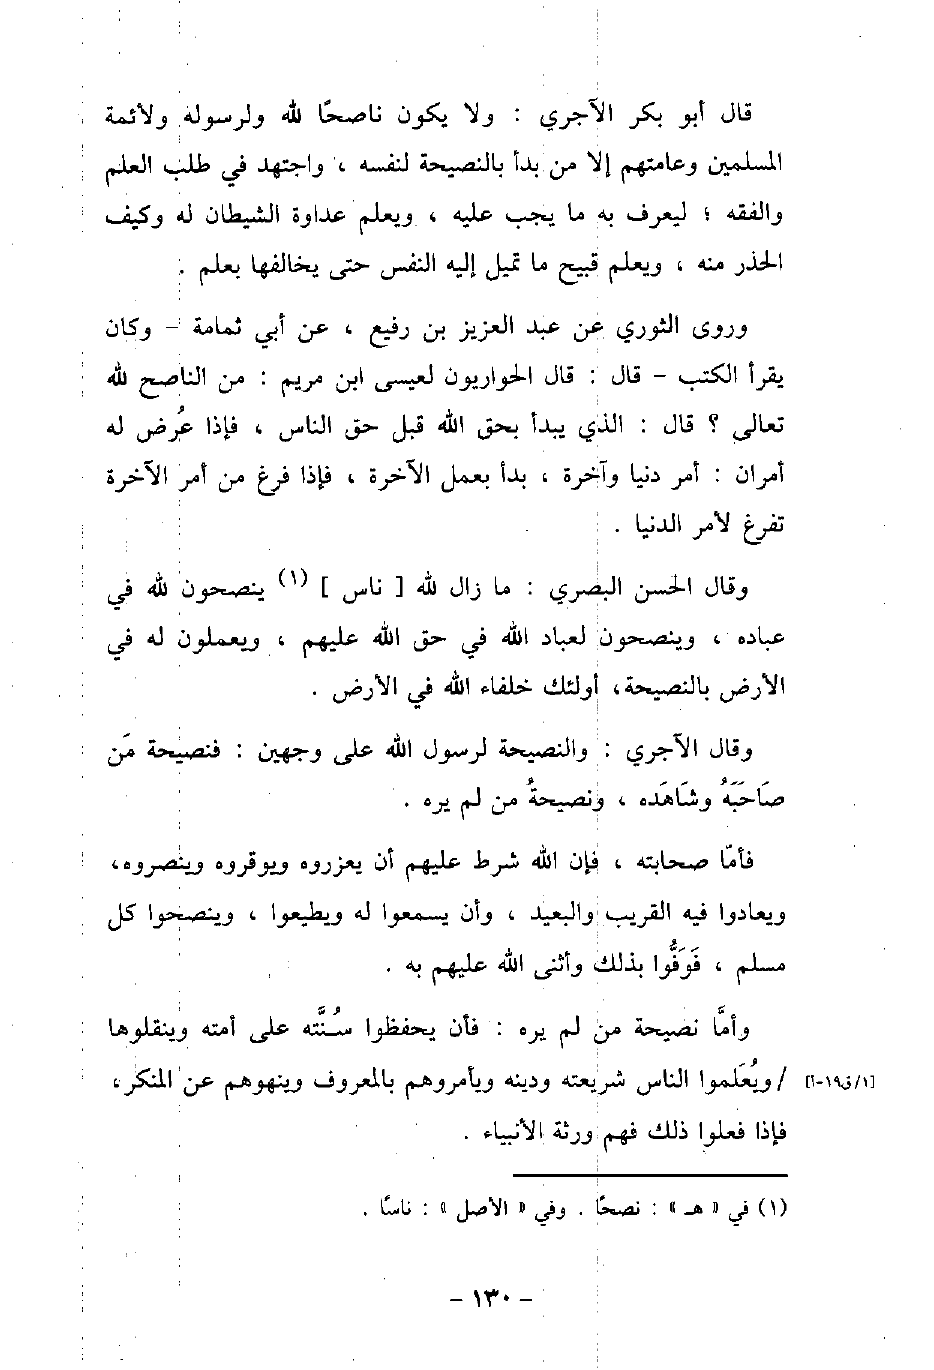 قال أبو بكر الآجري : ولا يكون ناصحًا لله ولرسوله ولائمة
المسلمين وعامتهم إلا من بدأ بالنصيحة لنفسه ، واجتهد في طلب العلم
والفقه ؛ ليعرف به ما يجب عليه ، ويعلم عداوة الشيطان له وكيف
الحذر منه ، ويعلم قبيح ما تميل إليه النفس حتى يخالفها بعلم .
وروى الثوري عن عبد العزيز بن رفيع ، عن أبي ثمامة - وكان
يقرأ الكتب - قال : قال الحواريون لعيسى ابن مريم : من الناصح لله
تعالى ؟ قال : الذي يبدأ بحق الله قبل حق الناس ، فإذا عُرض له
أمران : أمر دنيا وآخرة ، بدأ بعمل الآخرة ، فإذا فرغ من أمر الآخرة
تفرغ لأمر الدنيا .
وقال الحسن البصري : ما زال لله [ ناس ] (١) ينصحون لله في
عباده ، وينصحون لعباد الله في حق الله عليهم ، ويعملون له في
الأرض بالنصيحة، أولئك خلفاء الله في الأرض .
وقال الآجري : والنصيحة لرسول الله على وجهين : فنصيحة مَن
صَاحَبَهُ وشَاهَده ، ونصيحةُ من لم يره .
فأمّا صحابته ، فإن الله شرط عليهم أن يعزروه ويوقروه وينصروه،
ويعادوا فيه القريب والبعيد ، وأن يسمعوا له ويطيعوا ، وينصحوا كل
مسلم ، فَوَفُّوا بذلك وأثنى الله عليهم به .
وأمَّا نصيحة من لم يره : فأن يحفظوا سُنَّته على أمته وينقلوها
/ ويُعَلموا الناس شريعته ودينه ويأمروهم بالمعروف وينهوهم عن المنكر، [١/ق١٩-أ]
فإذا فعلوا ذلك فهم ورثة الأنبياء .
(١) في « هـ » : نصحًا . وفي « الأصل » : ناسًا .
- ١٣٠ -